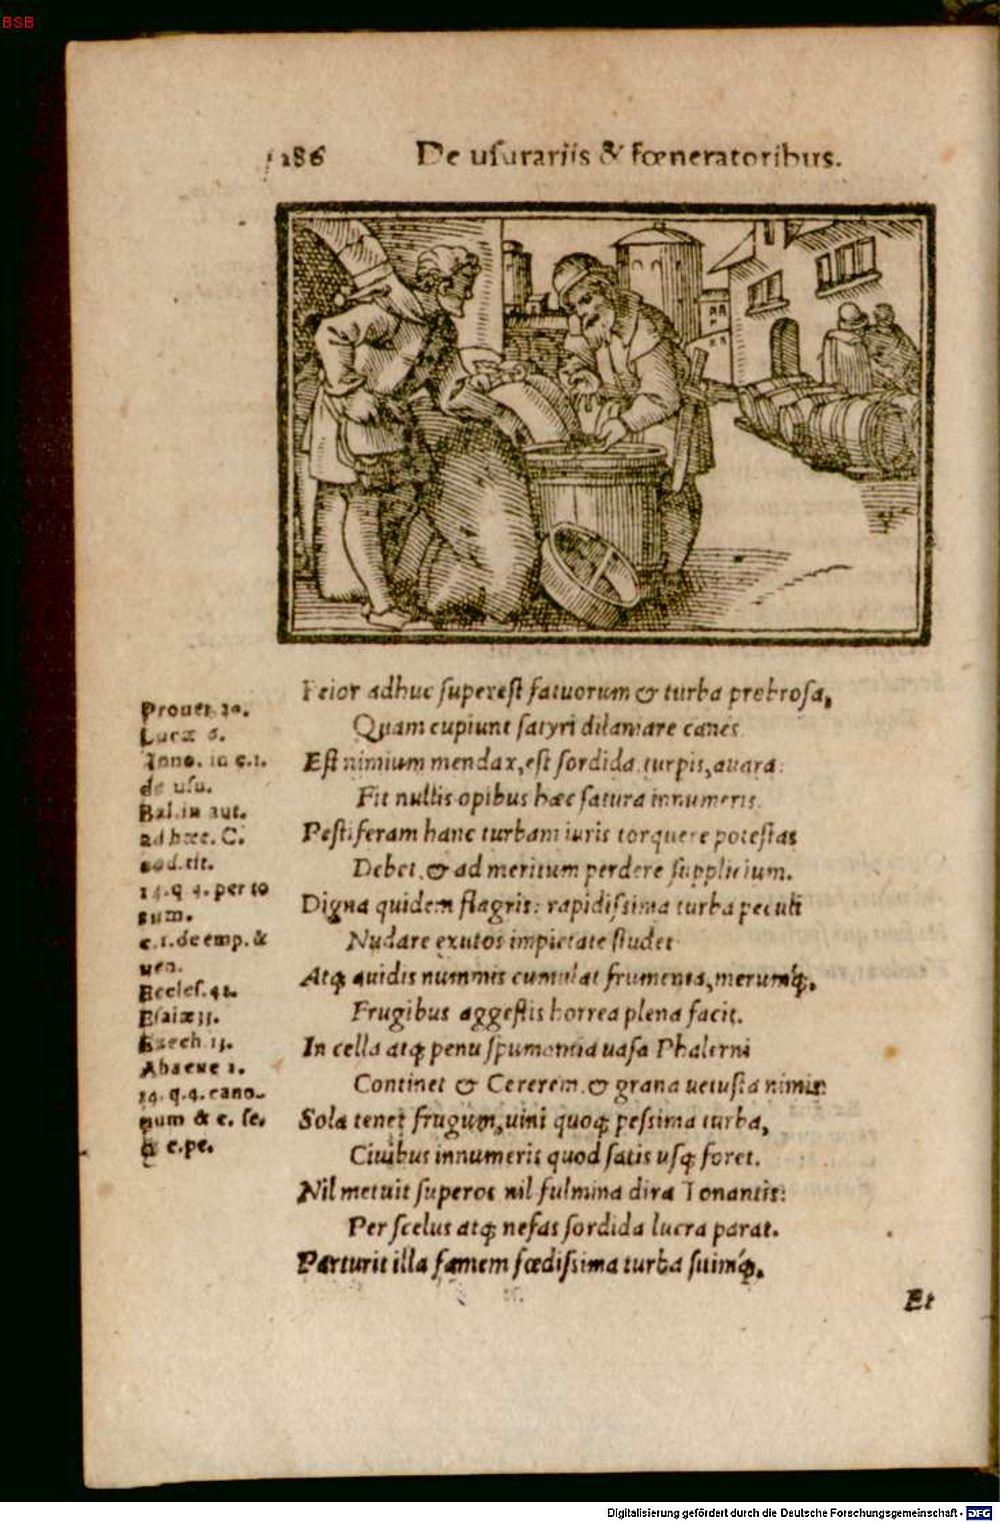 BSB
186 De usurariis & fœneratoribus.
Peior adhuc superest fatuorum & turba probrosa,
Quam cupiunt satyri dilaniare canes.
Est nimium mendax, est sordida, turpis, auara:
Fit nullis opibus hæc satura innumeris.
Pestiferam hanc turbam iuris torquere potestas
Debet, & ad meritum perdere supplicium.
Digna quidem flagris: rapidissima turba peculi
Nudare exutos impietate studet
Atq; auidis nummis cumulat frumenta, merumq́;,
Frugibus aggestis horrea plena facit.
In cella atq; penu spumantia uasa Phalerni
Continet & Cererem, & grana uetusta nimis:
Sola tenet frugum, uini quoq; pessima turba,
Ciuibus innumeris quod satis usq; foret.
Nil metuit superos nil fulmina dira Tonantis:
Per scelus atq; nefas sordida lucra parat.
Parturit illa famem fœdissima turba sitimq́;,
Et
Lucæ 6.
Inno. in c.1.
de usu.
Bal. in aut.
ad hæc. C.
eod. tit.
14. q 4. per to
tum.
c. 1. de emp. &
uen.
Eccles. 41.
Ezech
Abacuc 1.
14. q. 4. cano-
num & c. se.
& c. pe.
Digitalisierung gefördert durch die Deutsche Forschungsgemeinschaft - DFG